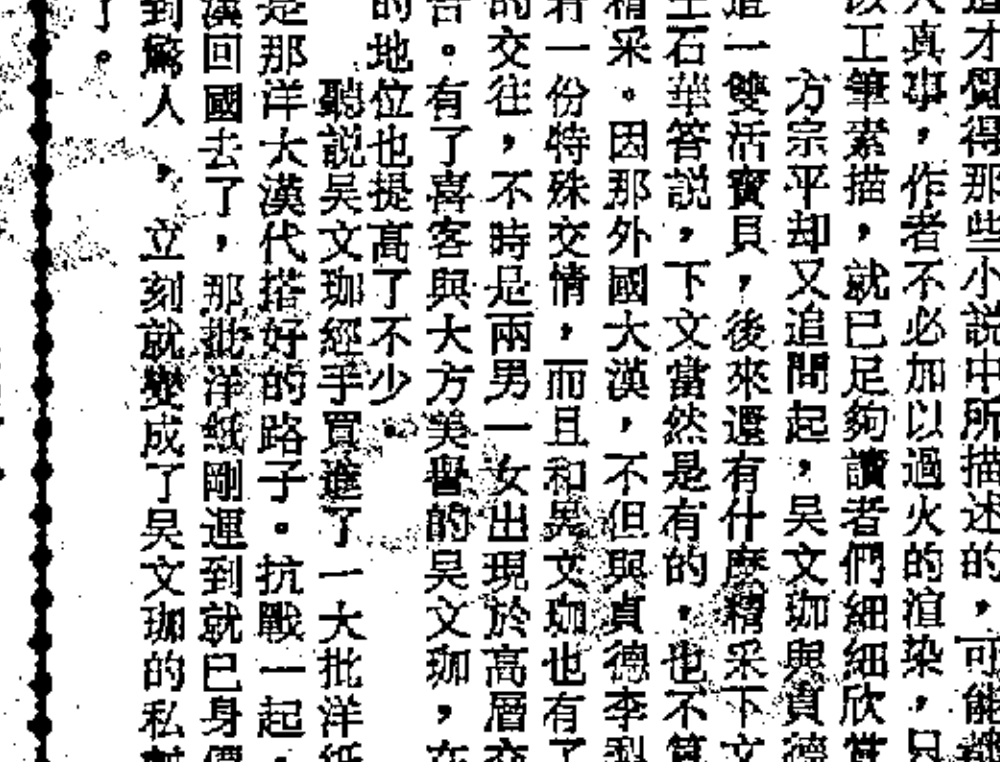 道才覺得那些小説中所描述的，可能都
人真事，作者不必加以過火的渲染，只
以工筆素描，就已足夠讀者們細細欣賞
方宗平却又追問起，吴文珈與貞德
這一雙活寶貝，後來還有什麽精采下文
王石華答説，下文當然是有的，也不算
精采。因那外國大漢，不但與貞德李梨
有一份特殊交情，而且和吴文珈也有了
的交往，不時是兩男一女出現於高層交
告。有了喜客與大方美譽的吴文珈，在
的地位也提高了不少。
聽説吴文珈經手買進了一大批洋紙
是那洋大漢代搭好的路子。抗戰一起，
漢回國去了，那批洋紙剛運到就已身價
到驚人，立刻就變成了吴文珈的私
了。